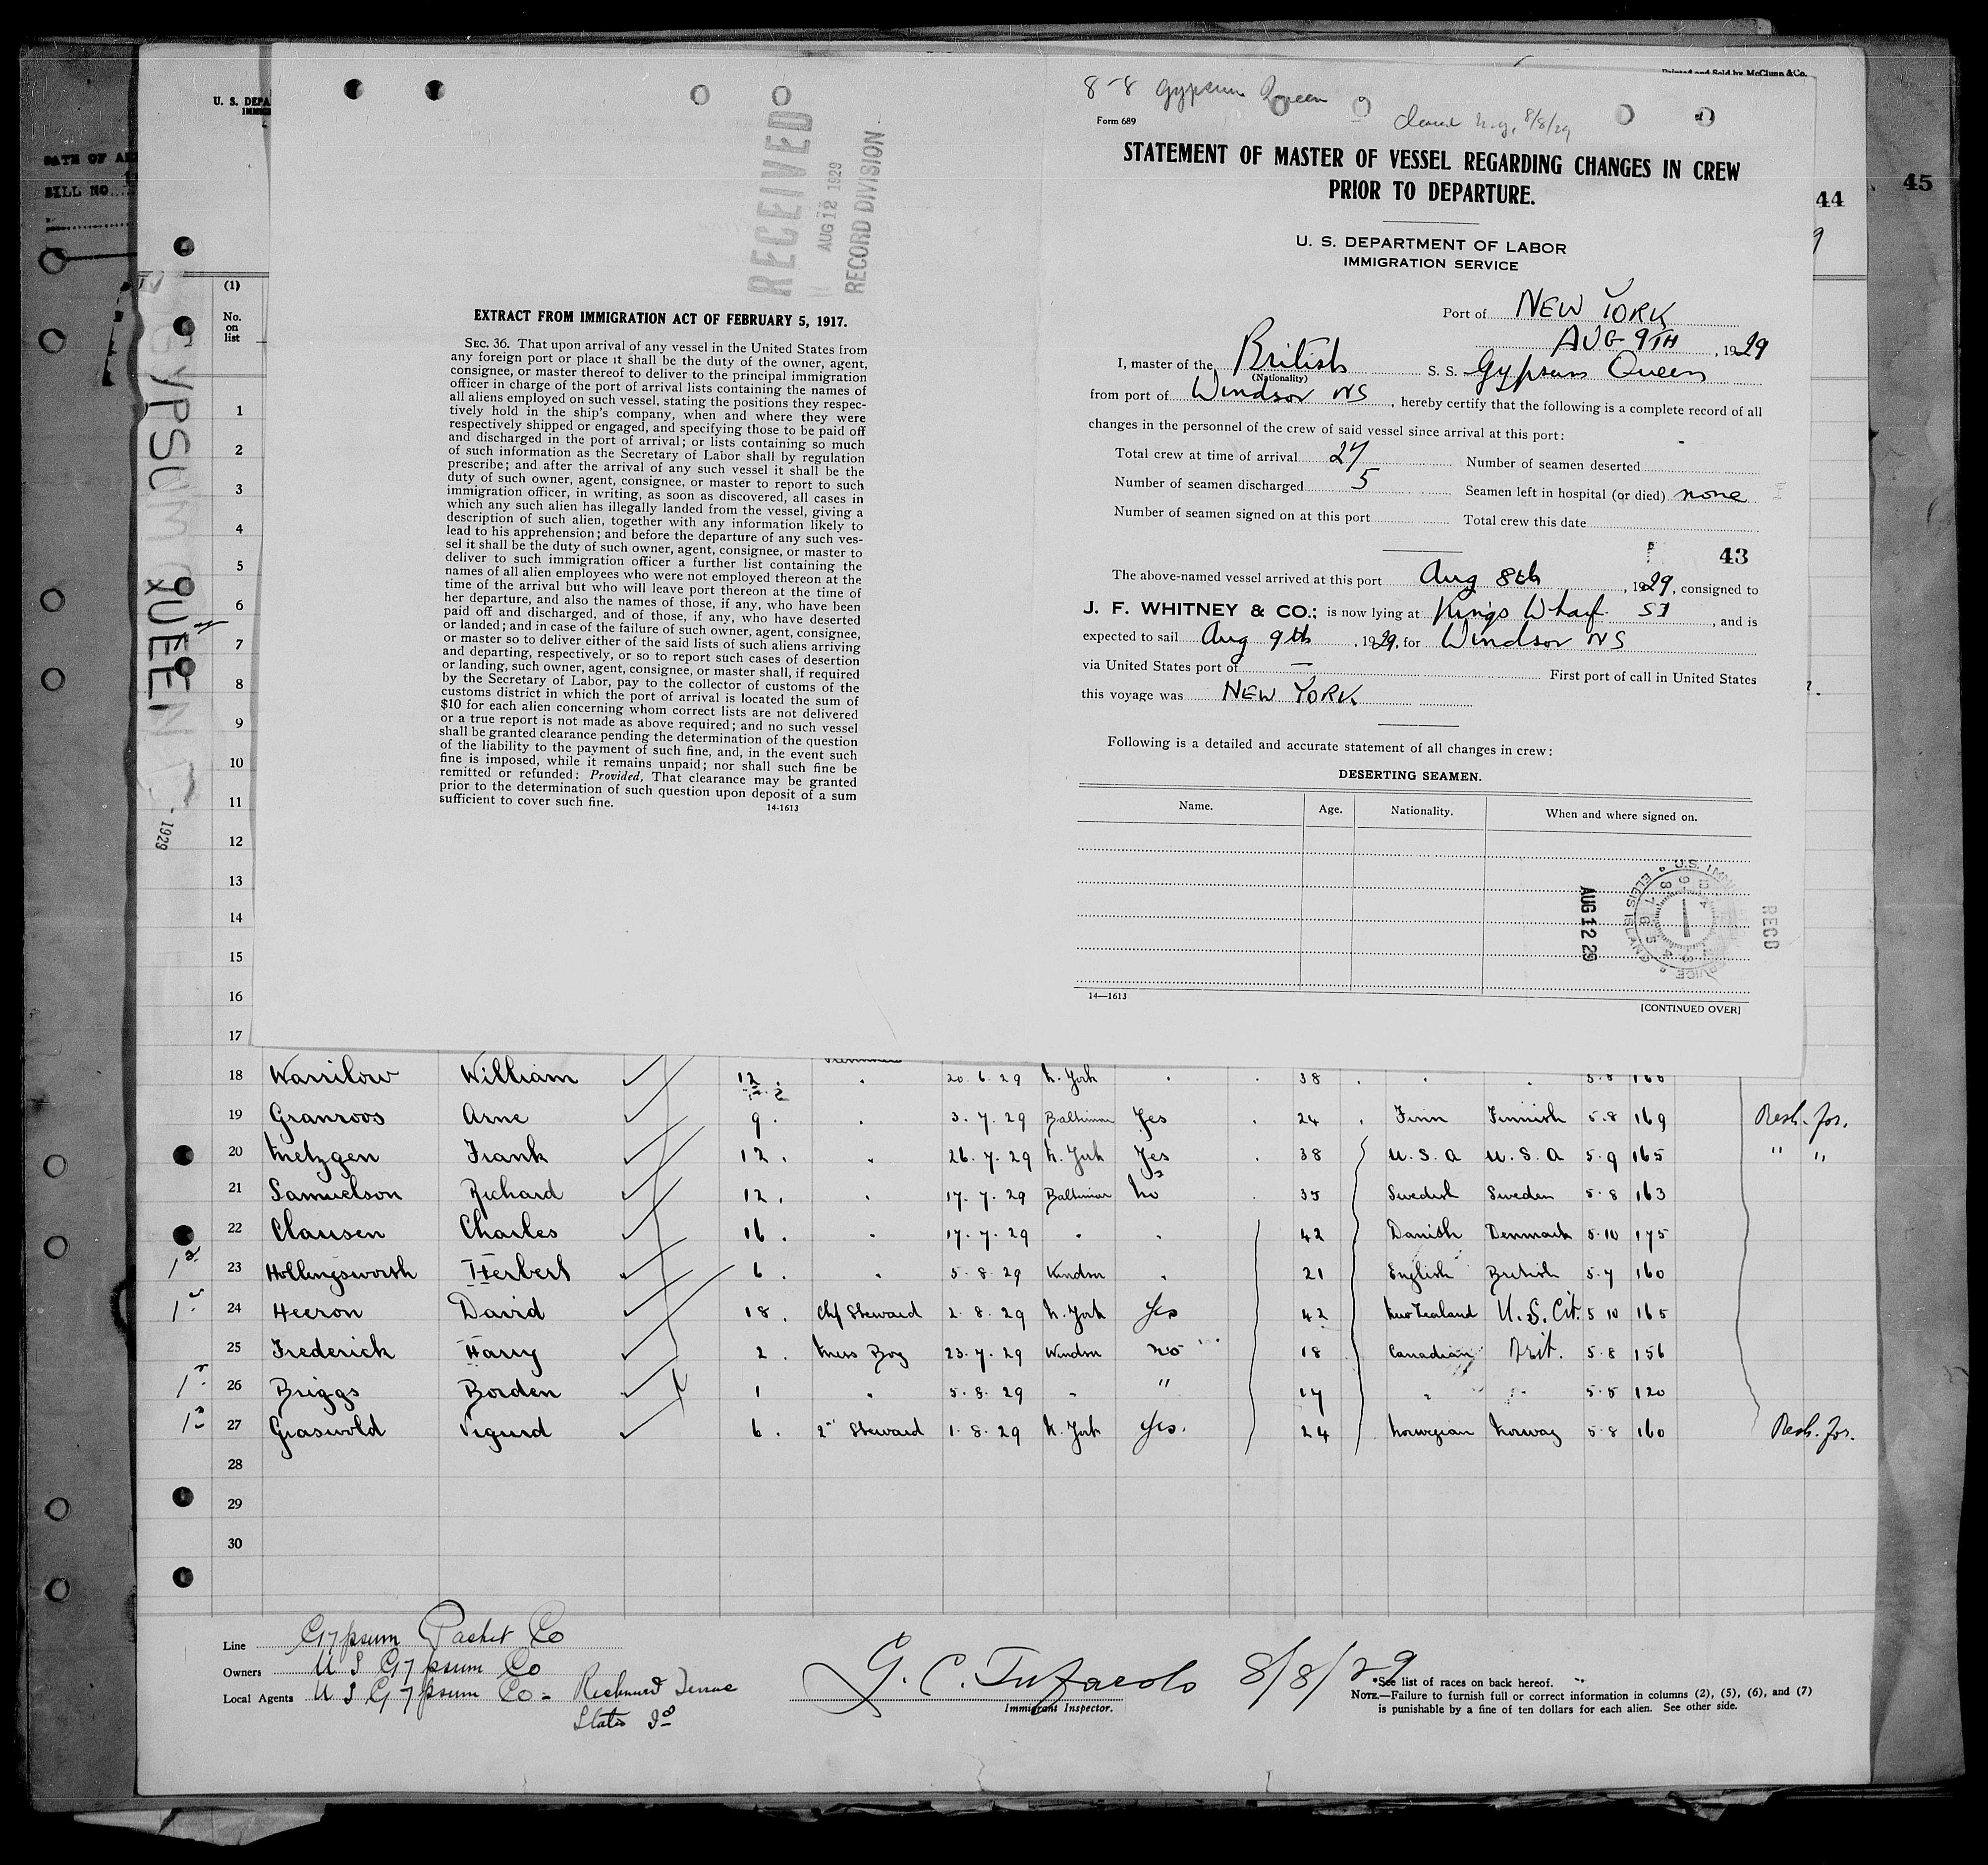 U. S. DEPA
IMMIG
DATE OF AR
BILL NO.
45
44
Printed and Sold by McClunn & Co.
RECEIVED
AUG 12 1929
RECORD DIVISION
EXTRACT FROM IMMIGRATION ACT OF FEBRUARY 5, 1917.
SEC. 36. That upon arrival of any vessel in the United States from
any foreign port or place it shall be the duty of the owner, agent,
consignee, or master thereof to deliver to the principal immigration
officer in charge of the port of arrival lists containing the names of
all aliens employed on such vessel, stating the positions they respec-
tively hold in the ship's company, when and where they were
respectively shipped or engaged, and specifying those to be paid off
and discharged in the port of arrival; or lists containing so much
of such information as the Secretary of Labor shall by regulation
prescribe; and after the arrival of any such vessel it shall be the
duty of such owner, agent, consignee, or master to report to such
immigration officer, in writing, as soon as discovered, all cases in
which any such alien has illegally landed from the vessel, giving a
description of such alien, together with any information likely to
lead to his apprehension; and before the departure of any such ves-
sel it shall be the duty of such owner, agent, consignee, or master to
deliver to such immigration officer a further list containing the
names of all alien employees who were not employed thereon at the
time of the arrival but who will leave port thereon at the time of
her departure, and also the names of those, if any, who have been
paid off and discharged, and of those, if any, who have deserted
or landed; and in case of the failure of such owner, agent, consignee,
or master so to deliver either of the said lists of such aliens arriving
and departing, respectively, or so to report such cases of desertion
or landing, such owner, agent, consignee, or master shall, if required
by the Secretary of Labor, pay to the collector of customs of the
customs district in which the port of arrival is located the sum of
$10 for each alien concerning whom correct lists are not delivered
or a true report is not made as above required; and no such vessel
shall be granted clearance pending the determination of the question
of the liability to the payment of such fine, and, in the event such
fine is imposed, while it remains unpaid; nor shall such fine be
remitted or refunded: Provided, That clearance may be granted
prior to the determination of such question upon deposit of a sum
sufficient to cover such fine.
14-1613
8-8 Gypsum Queen
Form 689
N.Y. 8/8/29
STATEMENT OF MASTER OF VESSEL REGARDING CHANGES IN CREW
PRIOR TO DEPARTURE.
U. S. DEPARTMENT OF LABOR
IMMIGRATION SERVICE
Port of NEW YORK
AUG 9TH, 1929
I, master of the British S. S. Gypsum Queen
(Nationality)
from port of Windsor NS, hereby certify that the following is a complete record of all
changes in the personnel of the crew of said vessel since arrival at this port:
Total crew at time of arrival 27 Number of seamen deserted -
Number of seamen discharged 5 Seamen left in hospital (or died) none
Number of seamen signed on at this port Total crew this date
43
The above-named vessel arrived at this port Aug 8th, 1929, consigned to
J. F. WHITNEY & CO.; is now lying at Kings Wharf SI, and is
expected to sail Aug 9th, 1929, for Windsor NS
via United States port of — First port of call in United States
this voyage was NEW YORK
Following is a detailed and accurate statement of all changes in crew:
DESERTING SEAMEN.
Name. Age. Nationality. When and where signed on.
AUG 12 29
RECD
14—1613
[CONTINUED OVER]
GYPSUM QUEEN
- 1929
(1)
No.
on
list
1
2
3
4
5
6
7
8
9
10
11
12
13
14
15
16
17
18 Warrilow William 12 " 20.6.29 N. York " 38 " " 5.8 160
19 Granroos Arne 9 " 3.7.29 Baltimore Yes 24 Finn Finnish 5.8 169 Resh. for.
20 Metzgen Frank 12 " 26.7.29 N. York Yes 38 U.S.A U.S.A 5.9 165 " "
21 Samuelson Richard 12 " 17.7.29 Baltimor No 35 Swedish Sweden 5.8 163
22 Clausen Charles 16 " 17.7.29 " " 42 Danish Denmark 5.10 175
23 Hollingsworth Herbert 6 " 5.8.29 Windsor " 21 English British 5.7 160
24 Heeron David 18 Chf Steward 2.8.29 N. York Yes 42 New Zealand U.S. Cit. 5 10 165
25 Frederick Harry 2 Mess Boy 23.7.29 Windsor No 18 Canadian Brit. 5.8 156
26 Briggs Borden 1 " 5.8.29 " " 17 " " 5.5 120
27 Graswold Sigurd 6 2nd Steward 1.8.29 N. York Yes. 24 Norwegian Norway 5.8 160 Resh. for.
28
29
30
Line Gypsum Packet Co
Owners U S Gypsum Co
Local Agents U S Gypsum Co - Richmond Terrace
Staten Id
8/8/29
Immigrant Inspector.
*See list of races on back hereof.
NOTE.—Failure to furnish full or correct information in columns (2), (5), (6), and (7)
is punishable by a fine of ten dollars for each alien. See other side.